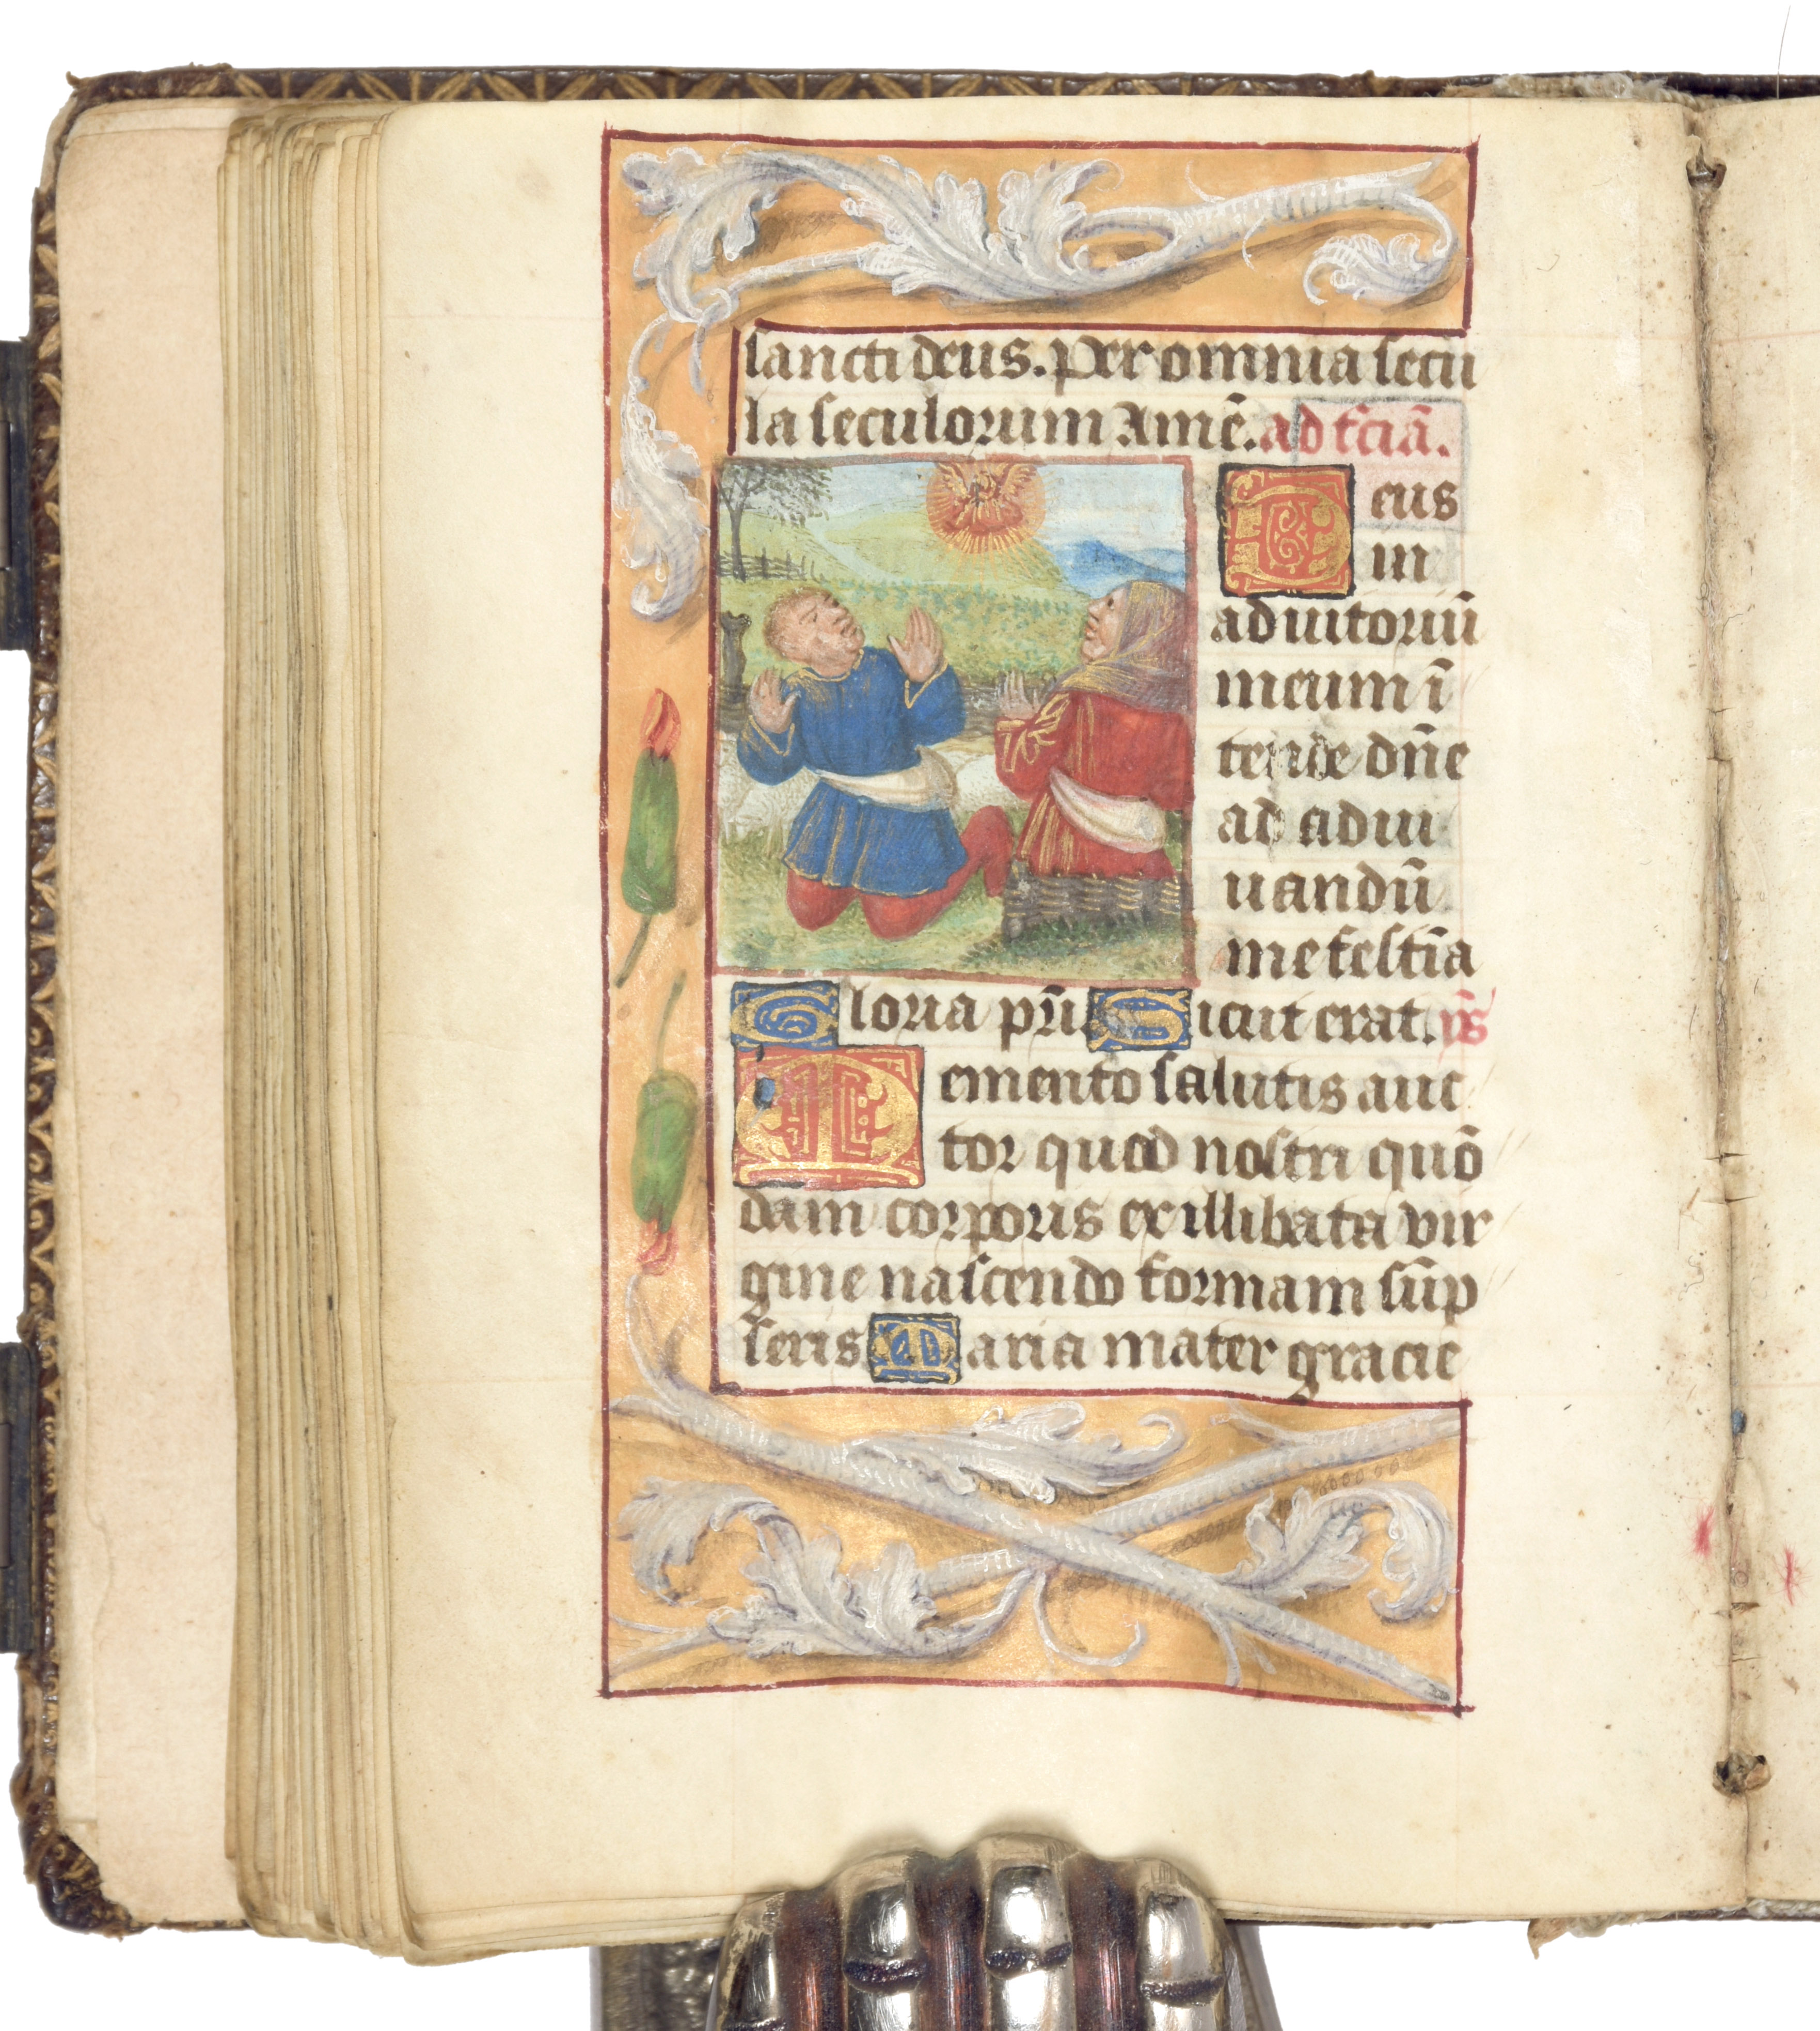 sancti deus. Per omnia secu
la seculorum Amē. ad t̄ciā.
Deus
in
adiutoriū
meum ī
tende dn̄e
ad adiu
uandū
me festīa
Gloria pr̄i Sicut erat. ym̄s
Memento salutis auc
tor quod nostri quō
dam corporis ex illibata vir
gine nascendo formam sūp
seris Maria mater gracie